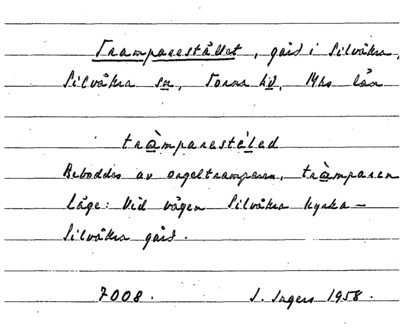 Tramparestället, gård i Silvåkra,
Silvåkra sn, Torna hd, Mhs län
tràmparestéled
Beboddes av orgeltramparen, tràmparen
läge: Vid vägen Silvåkra kyrka –
Silvåkra gård.
7008. S. Ingers 1958.